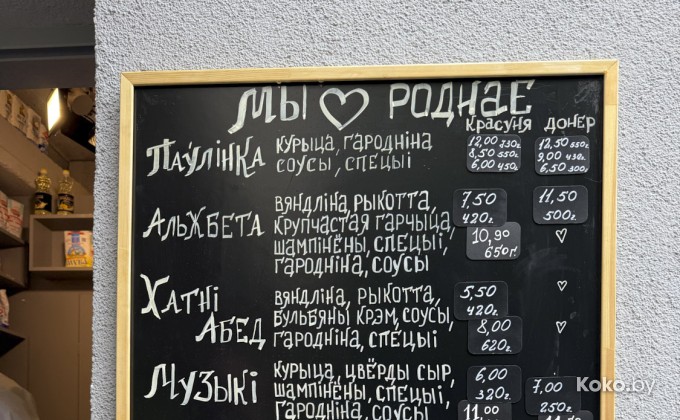 Мы ♡ роднае
красуня донер
Паўлінка
курыца, гародніна
соусы, спецыі
12,00 730г.
8,50 550г.
6,00 450г.
12,50 550г.
9,00 430г.
6,50 300г.
Альжбета
вяндліна, рыкотта,
крупчастая гарчыца,
шампінёны, спецыі,
гародніна, соусы
7,50
420г.
11,50
500г.
10,90
650г.
♡
Хатні
Абед
вяндліна, рыкотта,
бульбяны крэм, соусы,
гародніна, спецыі
5,50
420г.
♡
8,00
620г.
♡
Музыкі
курыца, цвёрды сыр,
шампінёны, спецыі,
гародніна, соусы
6,00
320г.
7,00
250г.
11,00
Koko.by